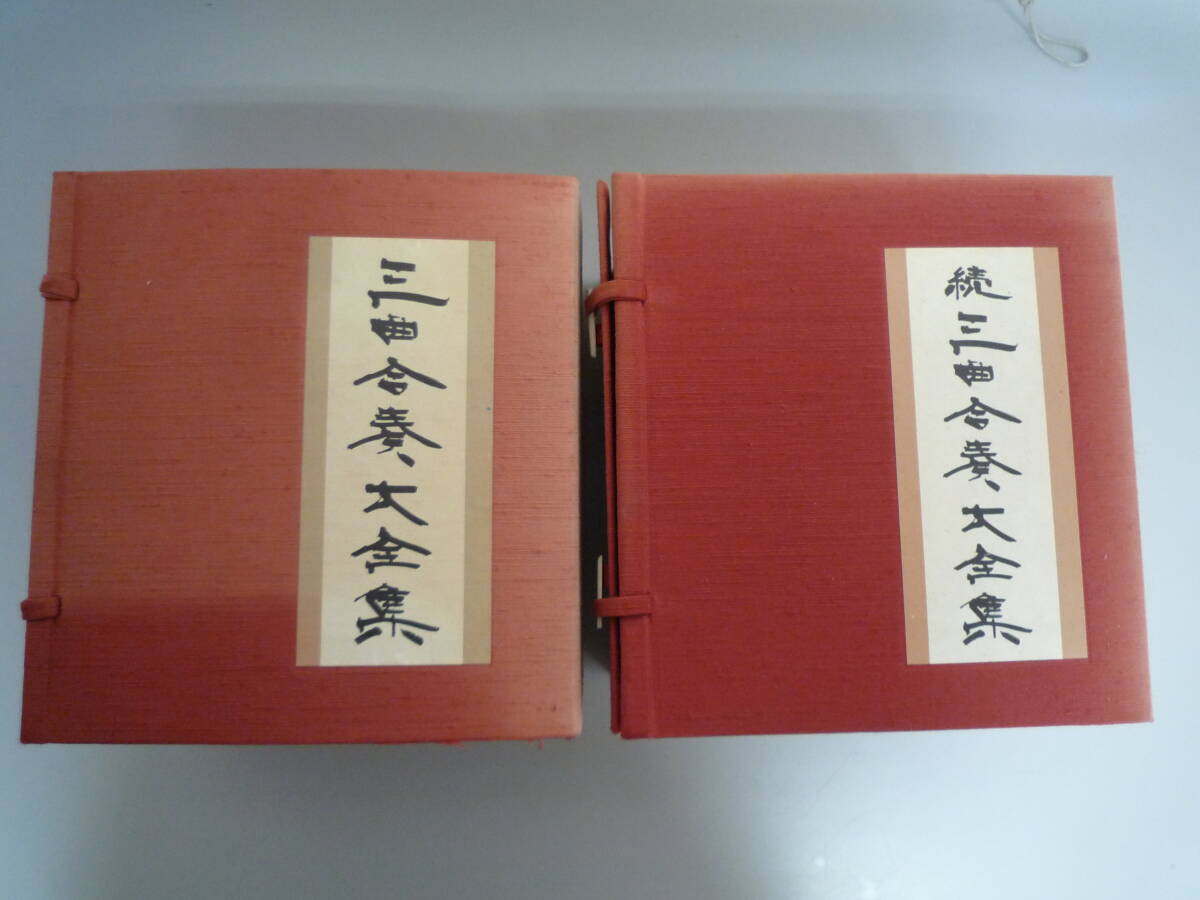 三曲合奏大全集
続三曲合奏大全集